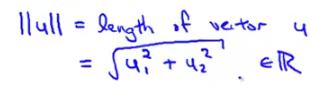 ||u|| = length of vector u
= √(u₁² + u₂²) ∈ℝ